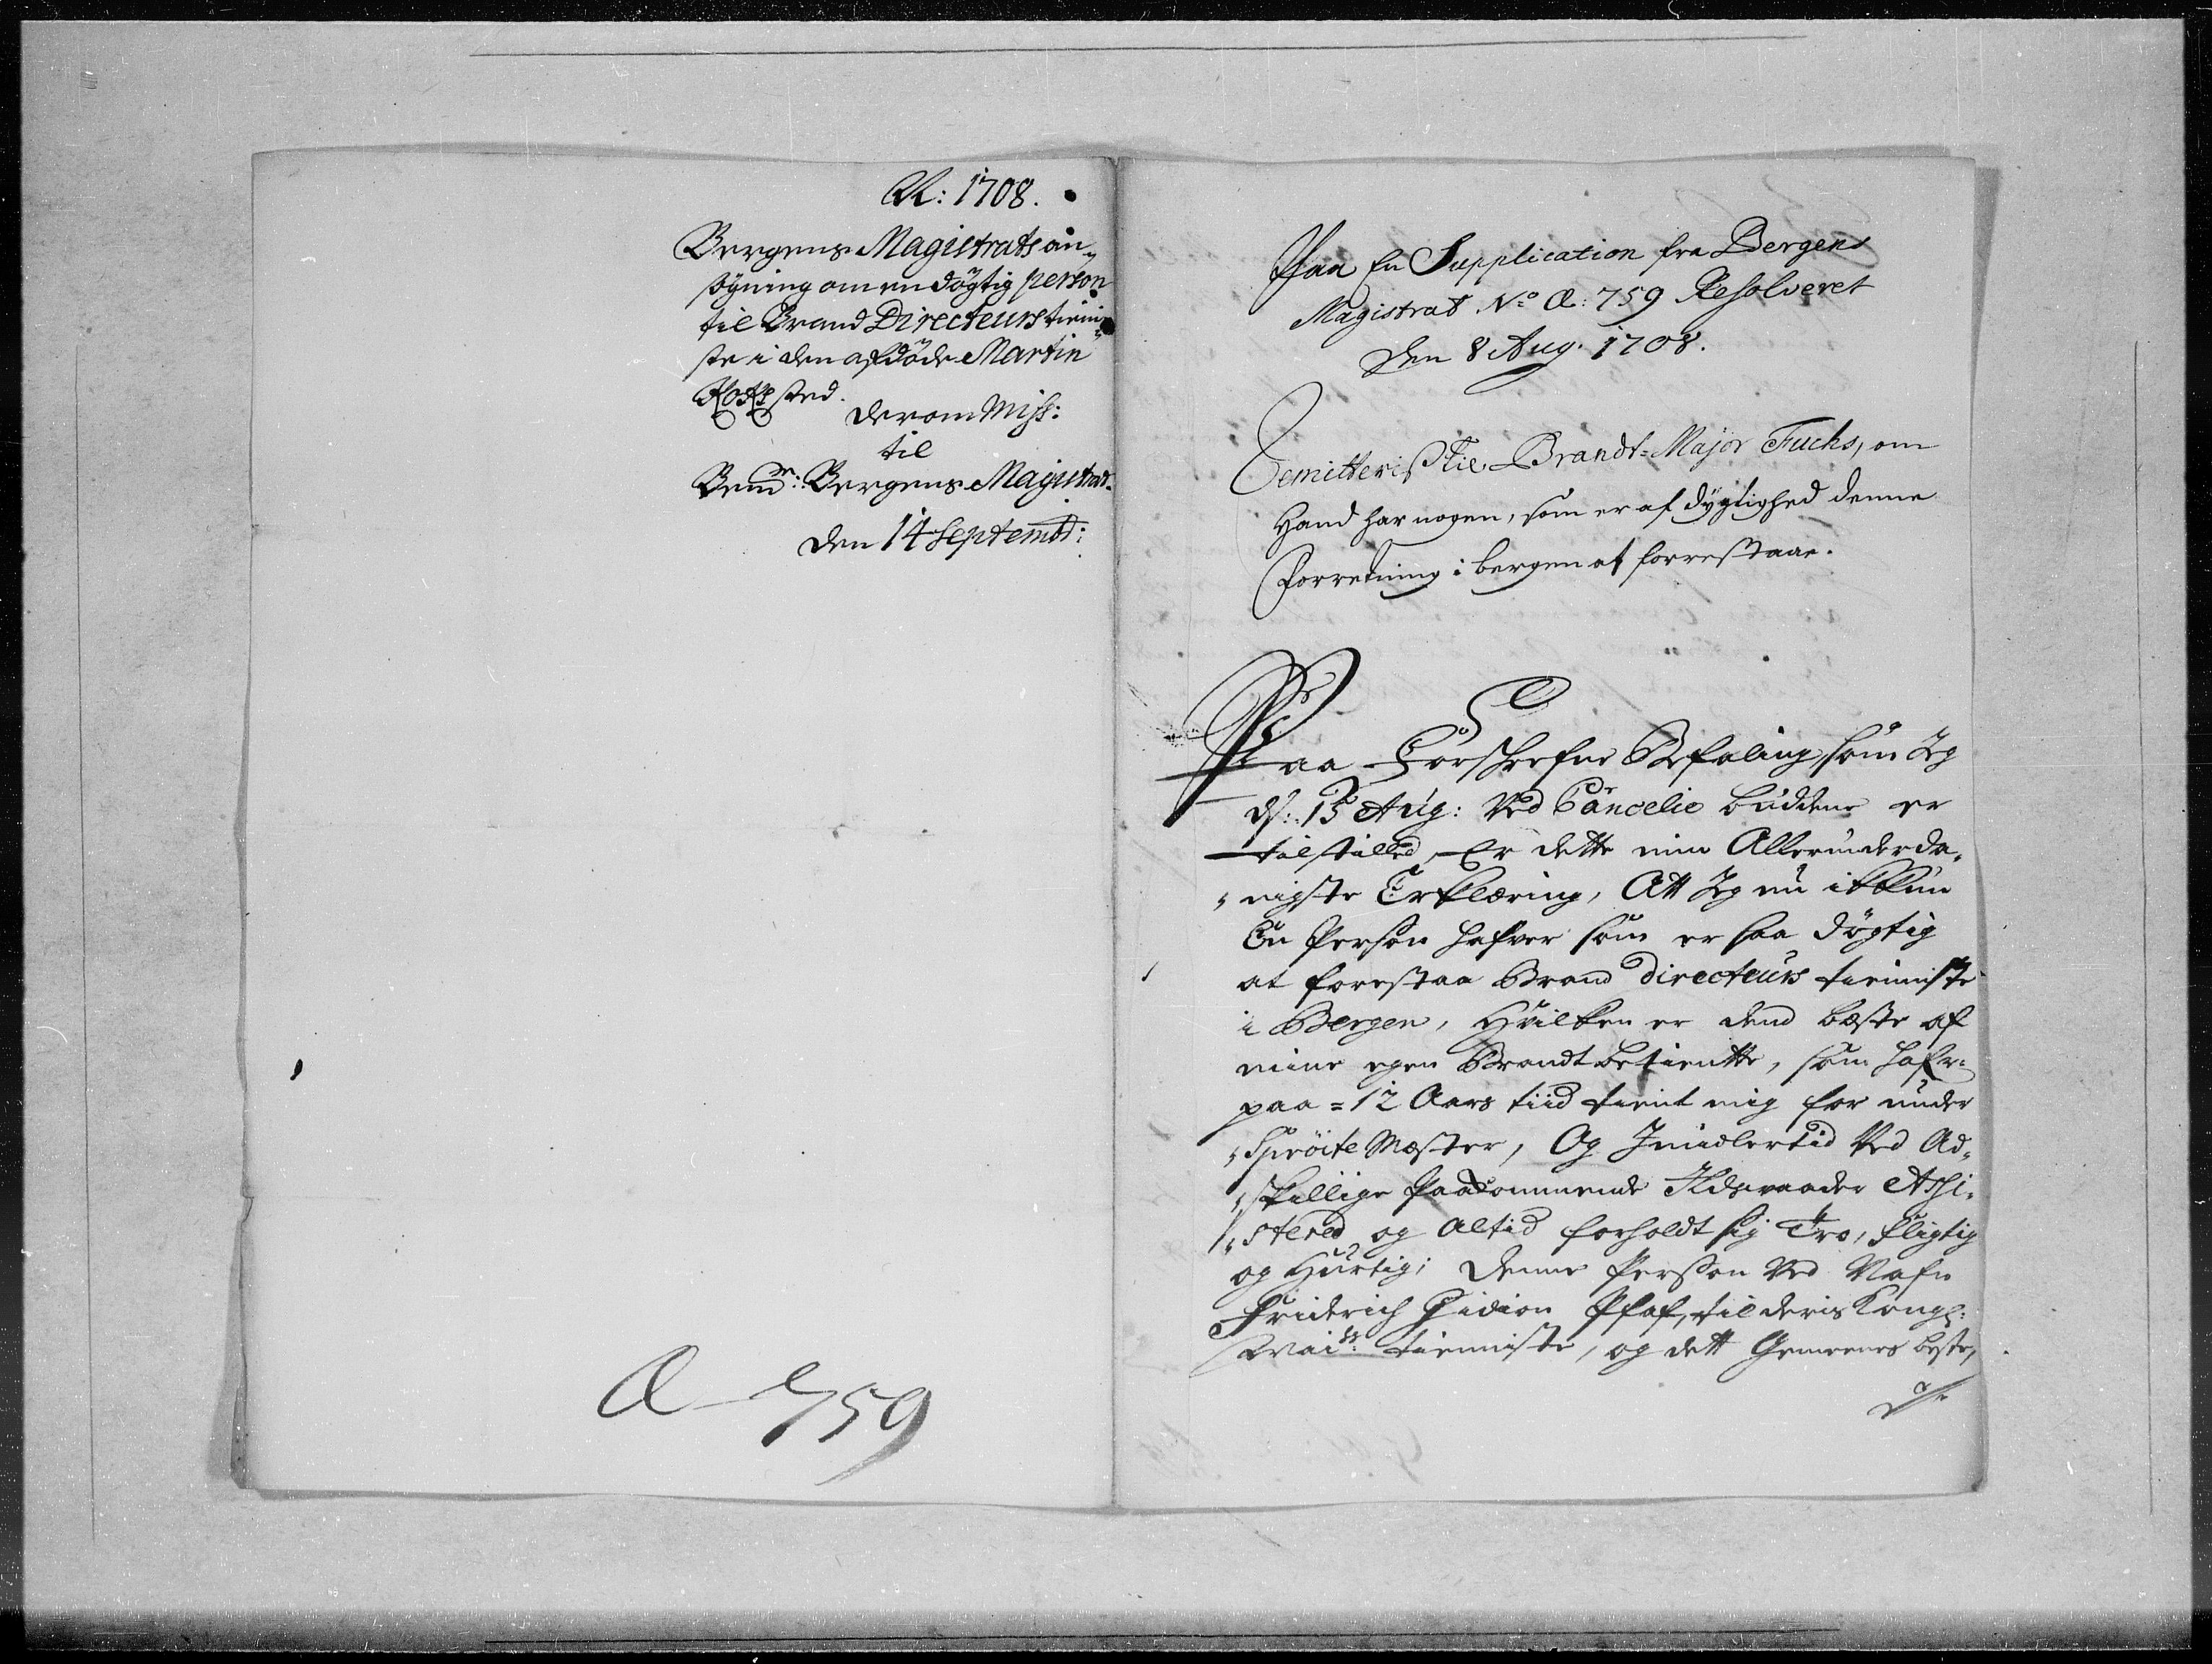 A: 1708.
Bergens Magistrats an-
søgning om en døgtig person
til Brand Directeurs tieni-
ste i den afdøde Martin
sted.
derom Miss:
til
Bergens Magistrat.
den 14 Septembr:
Æ 759
Paa En Supplication fra Bergens
Magistrat No Æ: 759 Resolveret
den 8 Aug. 1708.
Remitteris til Brandt-Major Fuchs, om
Hand har nogen, som er af dygtighed denne
Forretning i bergen at forrestaae.
Paa Forschrefne Befaling, som Jeg
d: 13 Aug: Ved Cancelie buddene er
tilstilled, Er dette min Allerunderda-
nigste Erklæring, Att Jeg nu ikkun
En Person hafver som er saa døgtig
at forestaa Brand Directeurs tienniste
i Bergen, Hvilken er dend beste af
mine egen Brandt betientte, som hafr:
paa = 12 Aars tiid tient mig for under
Sprøite Mæster, Og Imidlertid Ved Ad-
skillige Paakommende Ildsvaader Assi-
stered og altid forholdt sig Tro, fligtig
og Hurtig; Denne Person Ved Nafn
Friderich Gidion Pfaf, til deris Kongl:
Maits: tienniste, og dett Gemeenes beste,